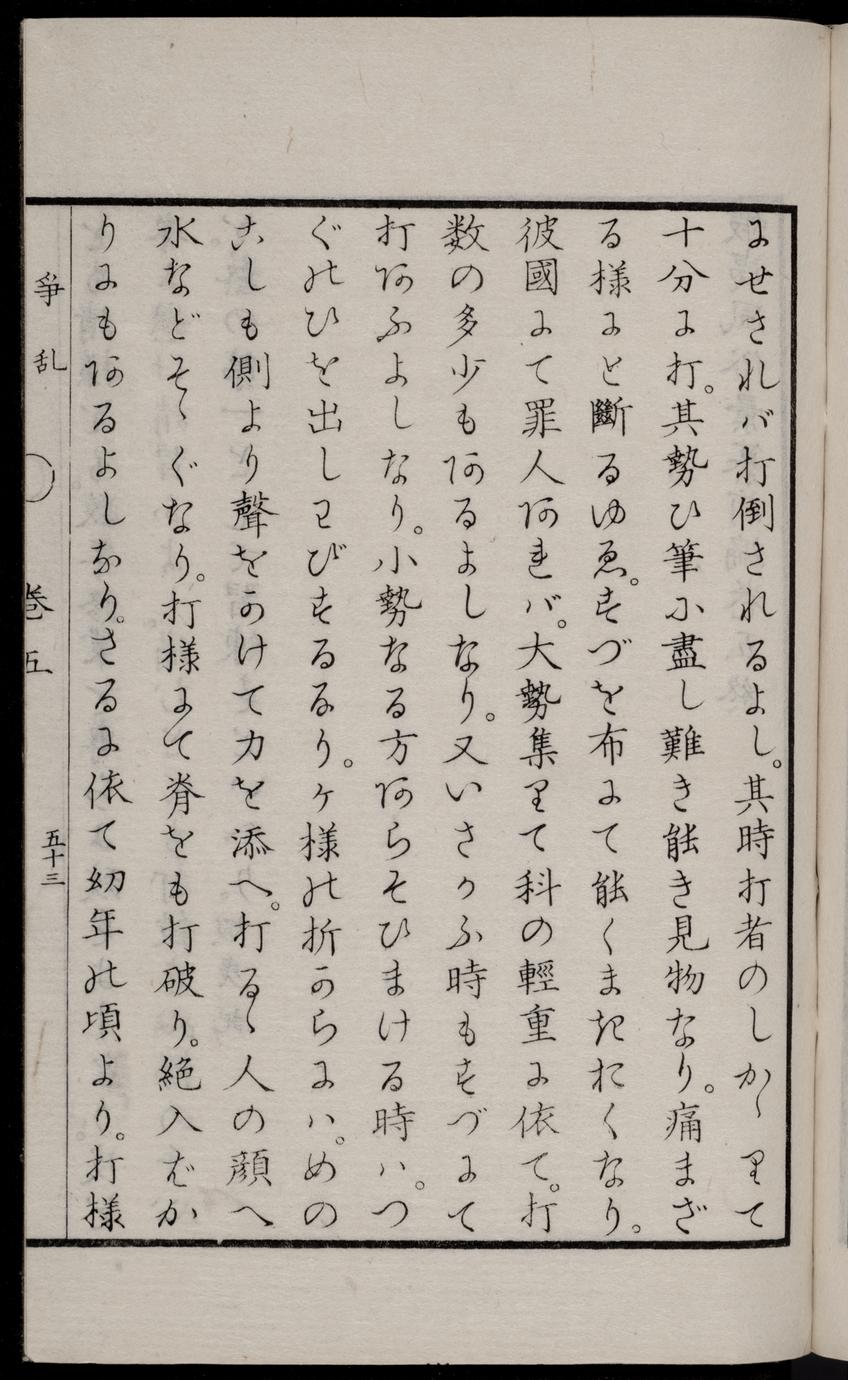 にせされバ打倒されるよし。其時打者のしかゝりて
十分に打。其勢ひ筆に盡し難き能き見物なり。痛まざ
る様にと斷るゆゑ。まづを布にて能くまきおくなり。
彼國にて罪人あれバ。大勢集りて科の輕重に依て。打
数の多少もあるよしなり。又いさかふ時もまづにて
打あふよしなり。小勢なる方あらそひまける時ハ。つ
ぐのひを出しわびするなり。ヶ様の折からにハ。めの
こしも側より聲をかけて力を添へ。打るゝ人の顔へ
水などそゝぐなり。打様にて脊をも打破り。絶入ばか
りにもあるよしなり。さるに依て幼年の頃より。打様
爭乱
巻五
五十三